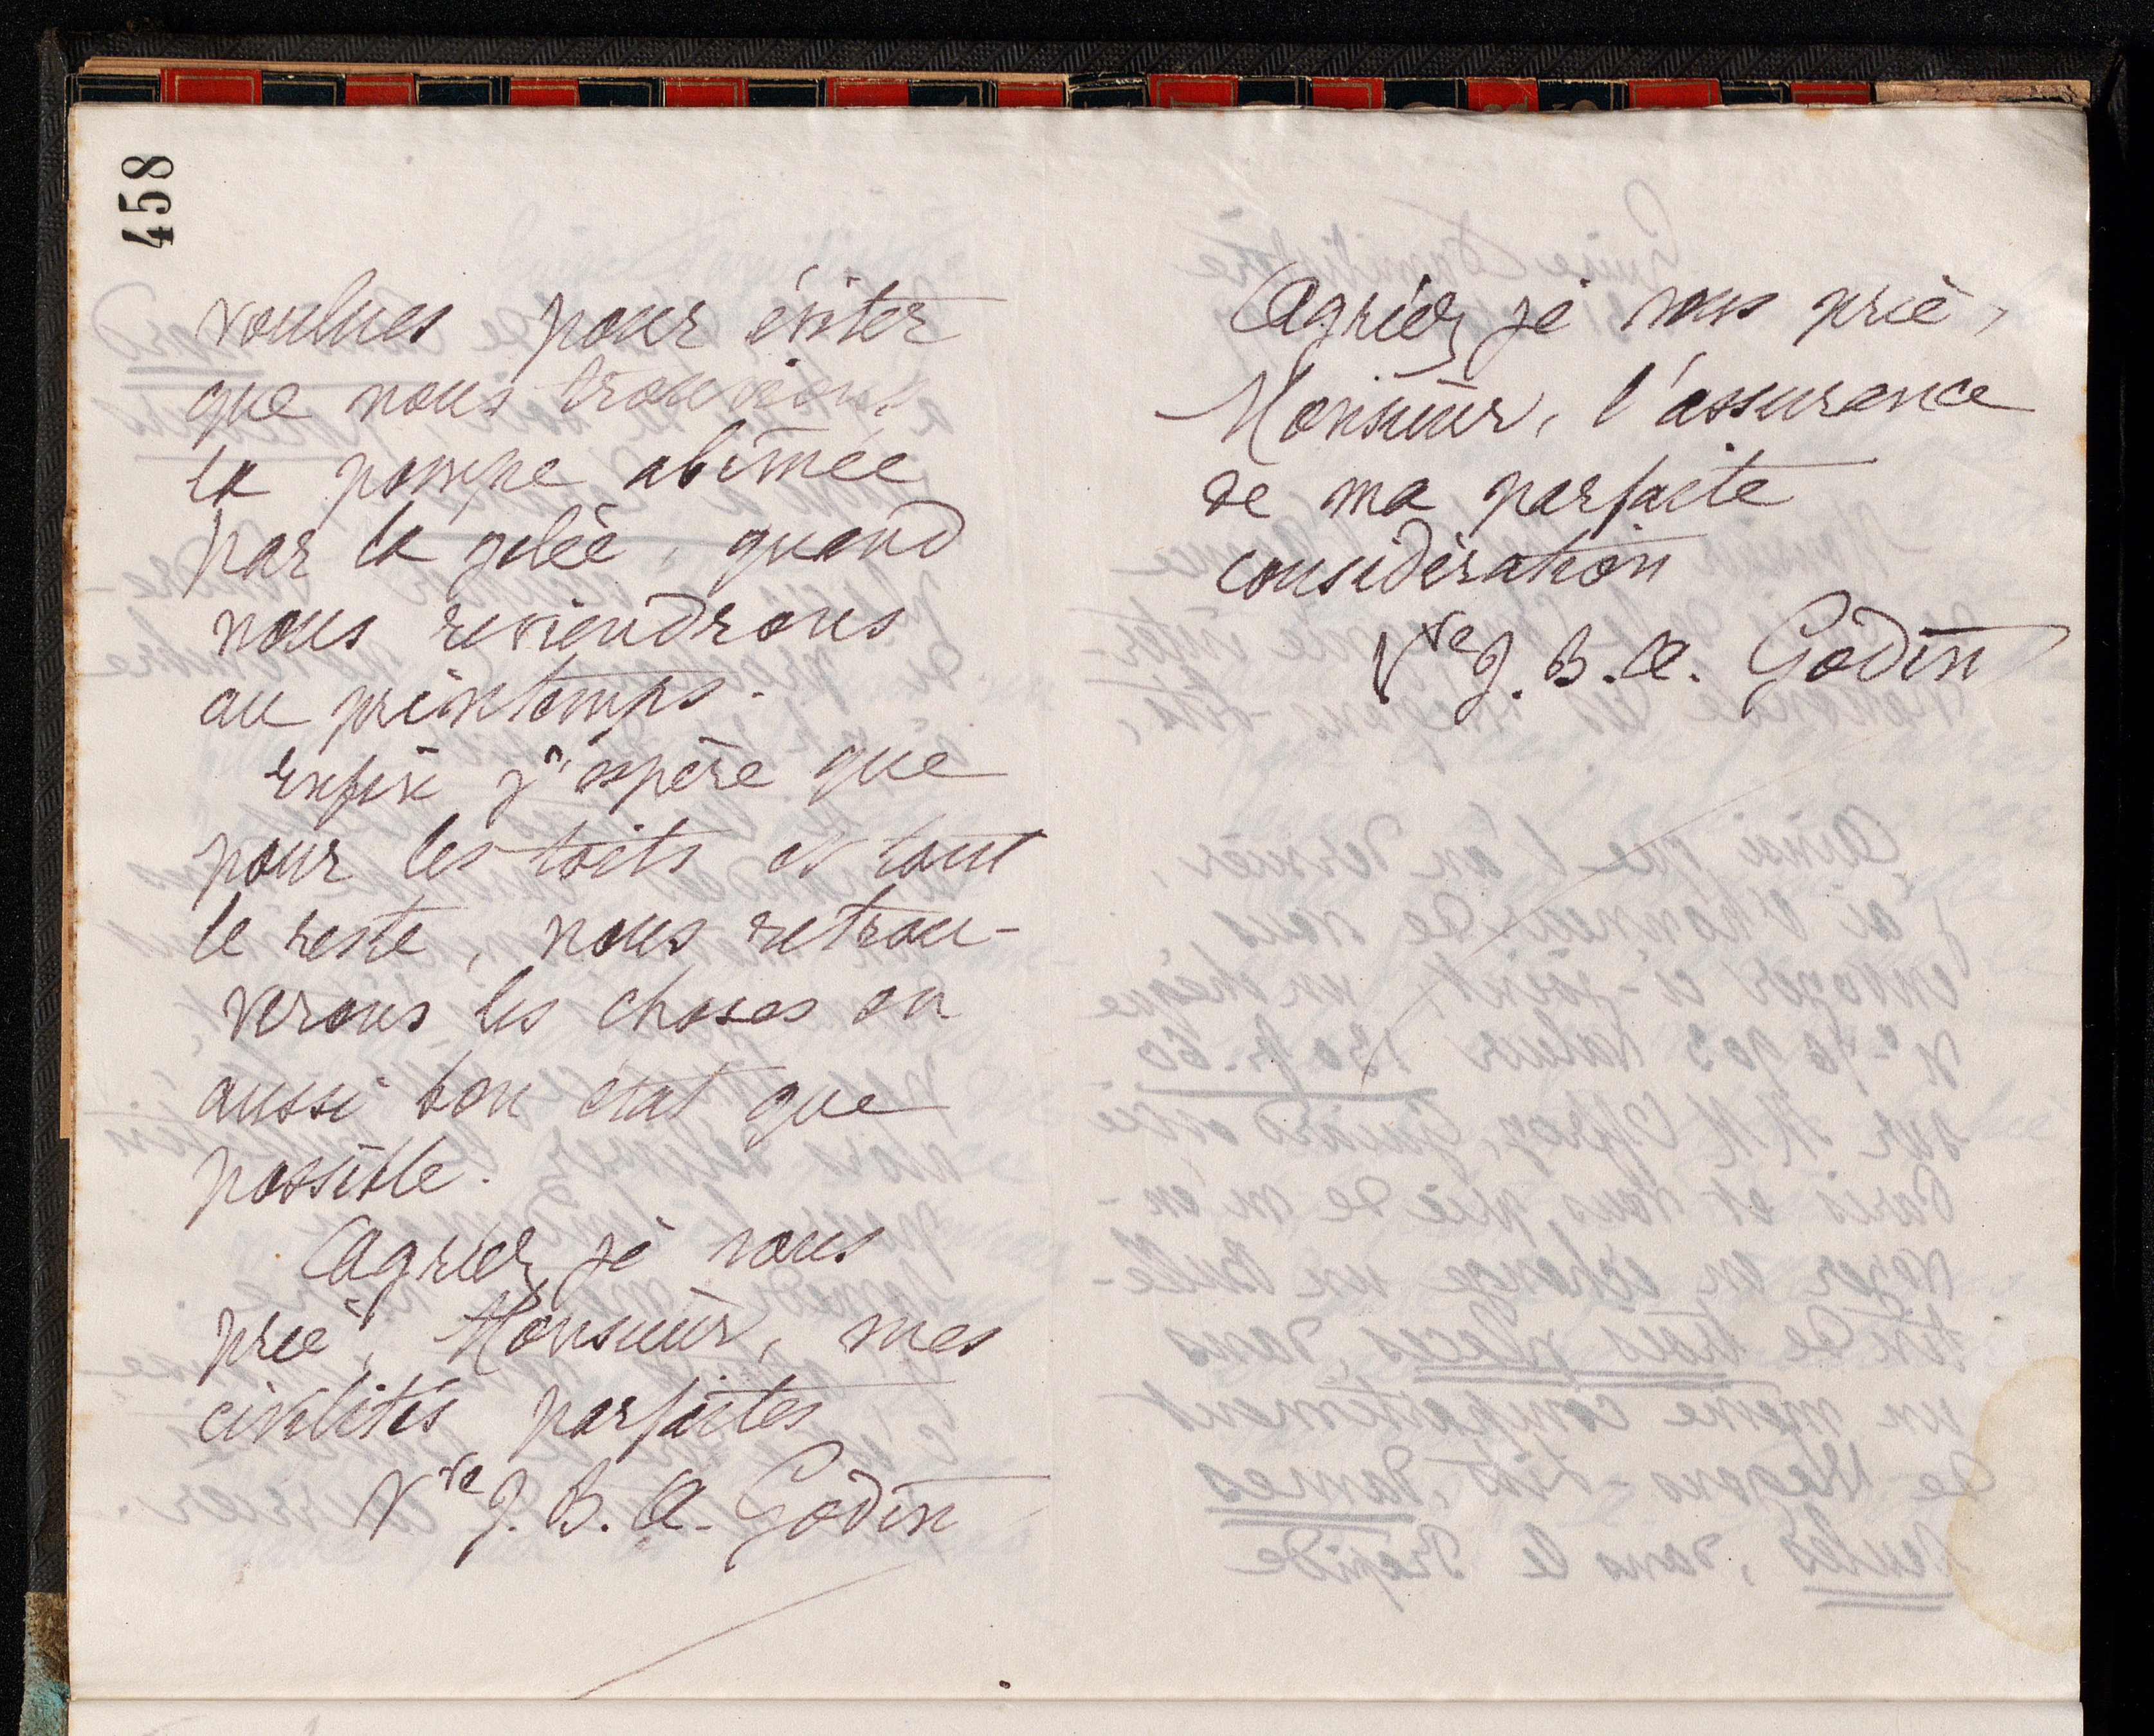 458
voulues pour éviter
que nous trouvions
la pompe abîmée
par la gelée, quand
nous reviendrons
au printemps.
Enfin j'espère que
pour les toits et tout
le reste, nous retrou-
verons les choses en
aussi bon état que
possible.
Agréez je vous
prie, Monsieur, mes
civilités parfaites
Vve J. B. A. Godin
Agréez je vous prie,
Monsieur, l'assurance
de ma parfaite
considération
Vve J. B. A. Godin